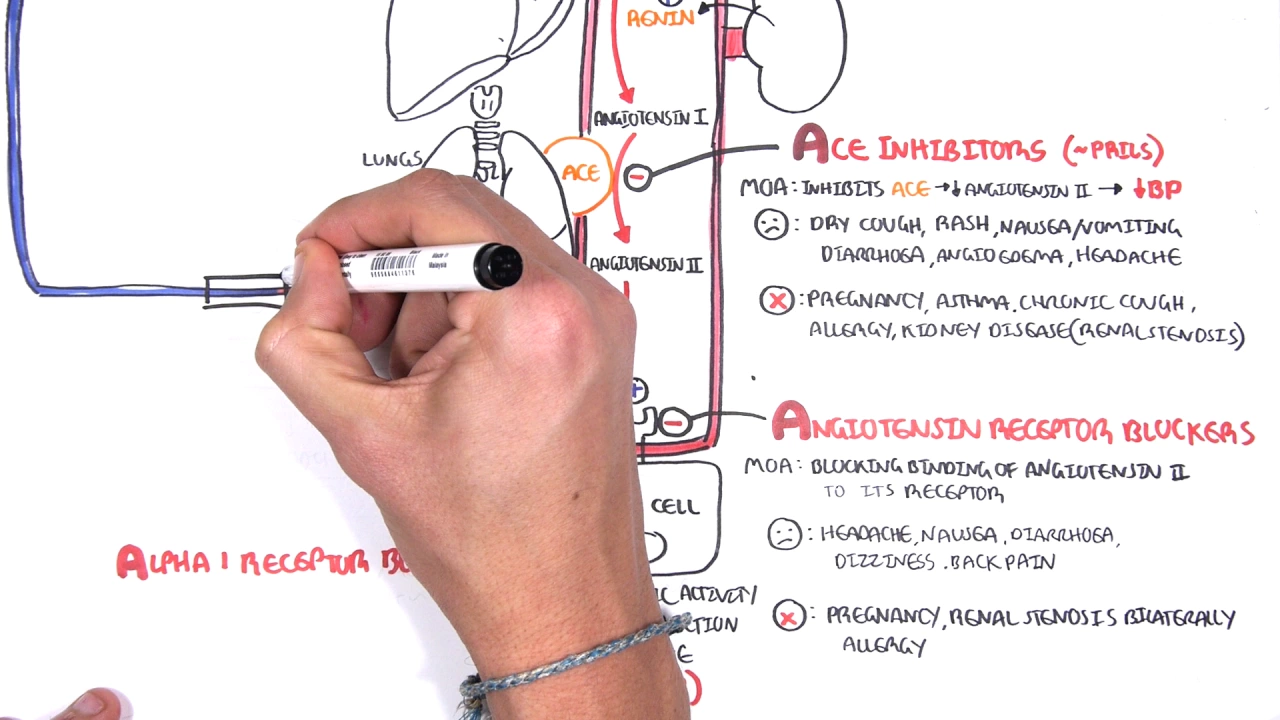 RENIN
ANGIOTENSIN I
LUNGS
ACE
ANGIOTENSIN II
Made in
Malaysia
ACE INHIBITORS (~PRILS)
MOA: INHIBITS ACE → ↓ ANGIOTENSIN II → ↓BP
: DRY COUGH, RASH, NAUSEA/VOMITING
DIARRHOEA, ANGIOEDEMA, HEADACHE
X : PREGNANCY, ASTHMA. CHRONIC COUGH,
ALLERGY, KIDNEY DISEASE (RENAL STENOSIS)
ANGIOTENSIN RECEPTOR BLOCKERS
MOA: BLOCKING BINDING OF ANGIOTENSIN II
TO ITS RECEPTOR
: HEADACHE, NAUSEA, DIARRHOEA,
DIZZINESS. BACK PAIN
X : PREGNANCY, RENAL STENOSIS BILATERALLY
ALLERGY
CELL
ALPHA 1 RECEPTOR
ACTIVITY